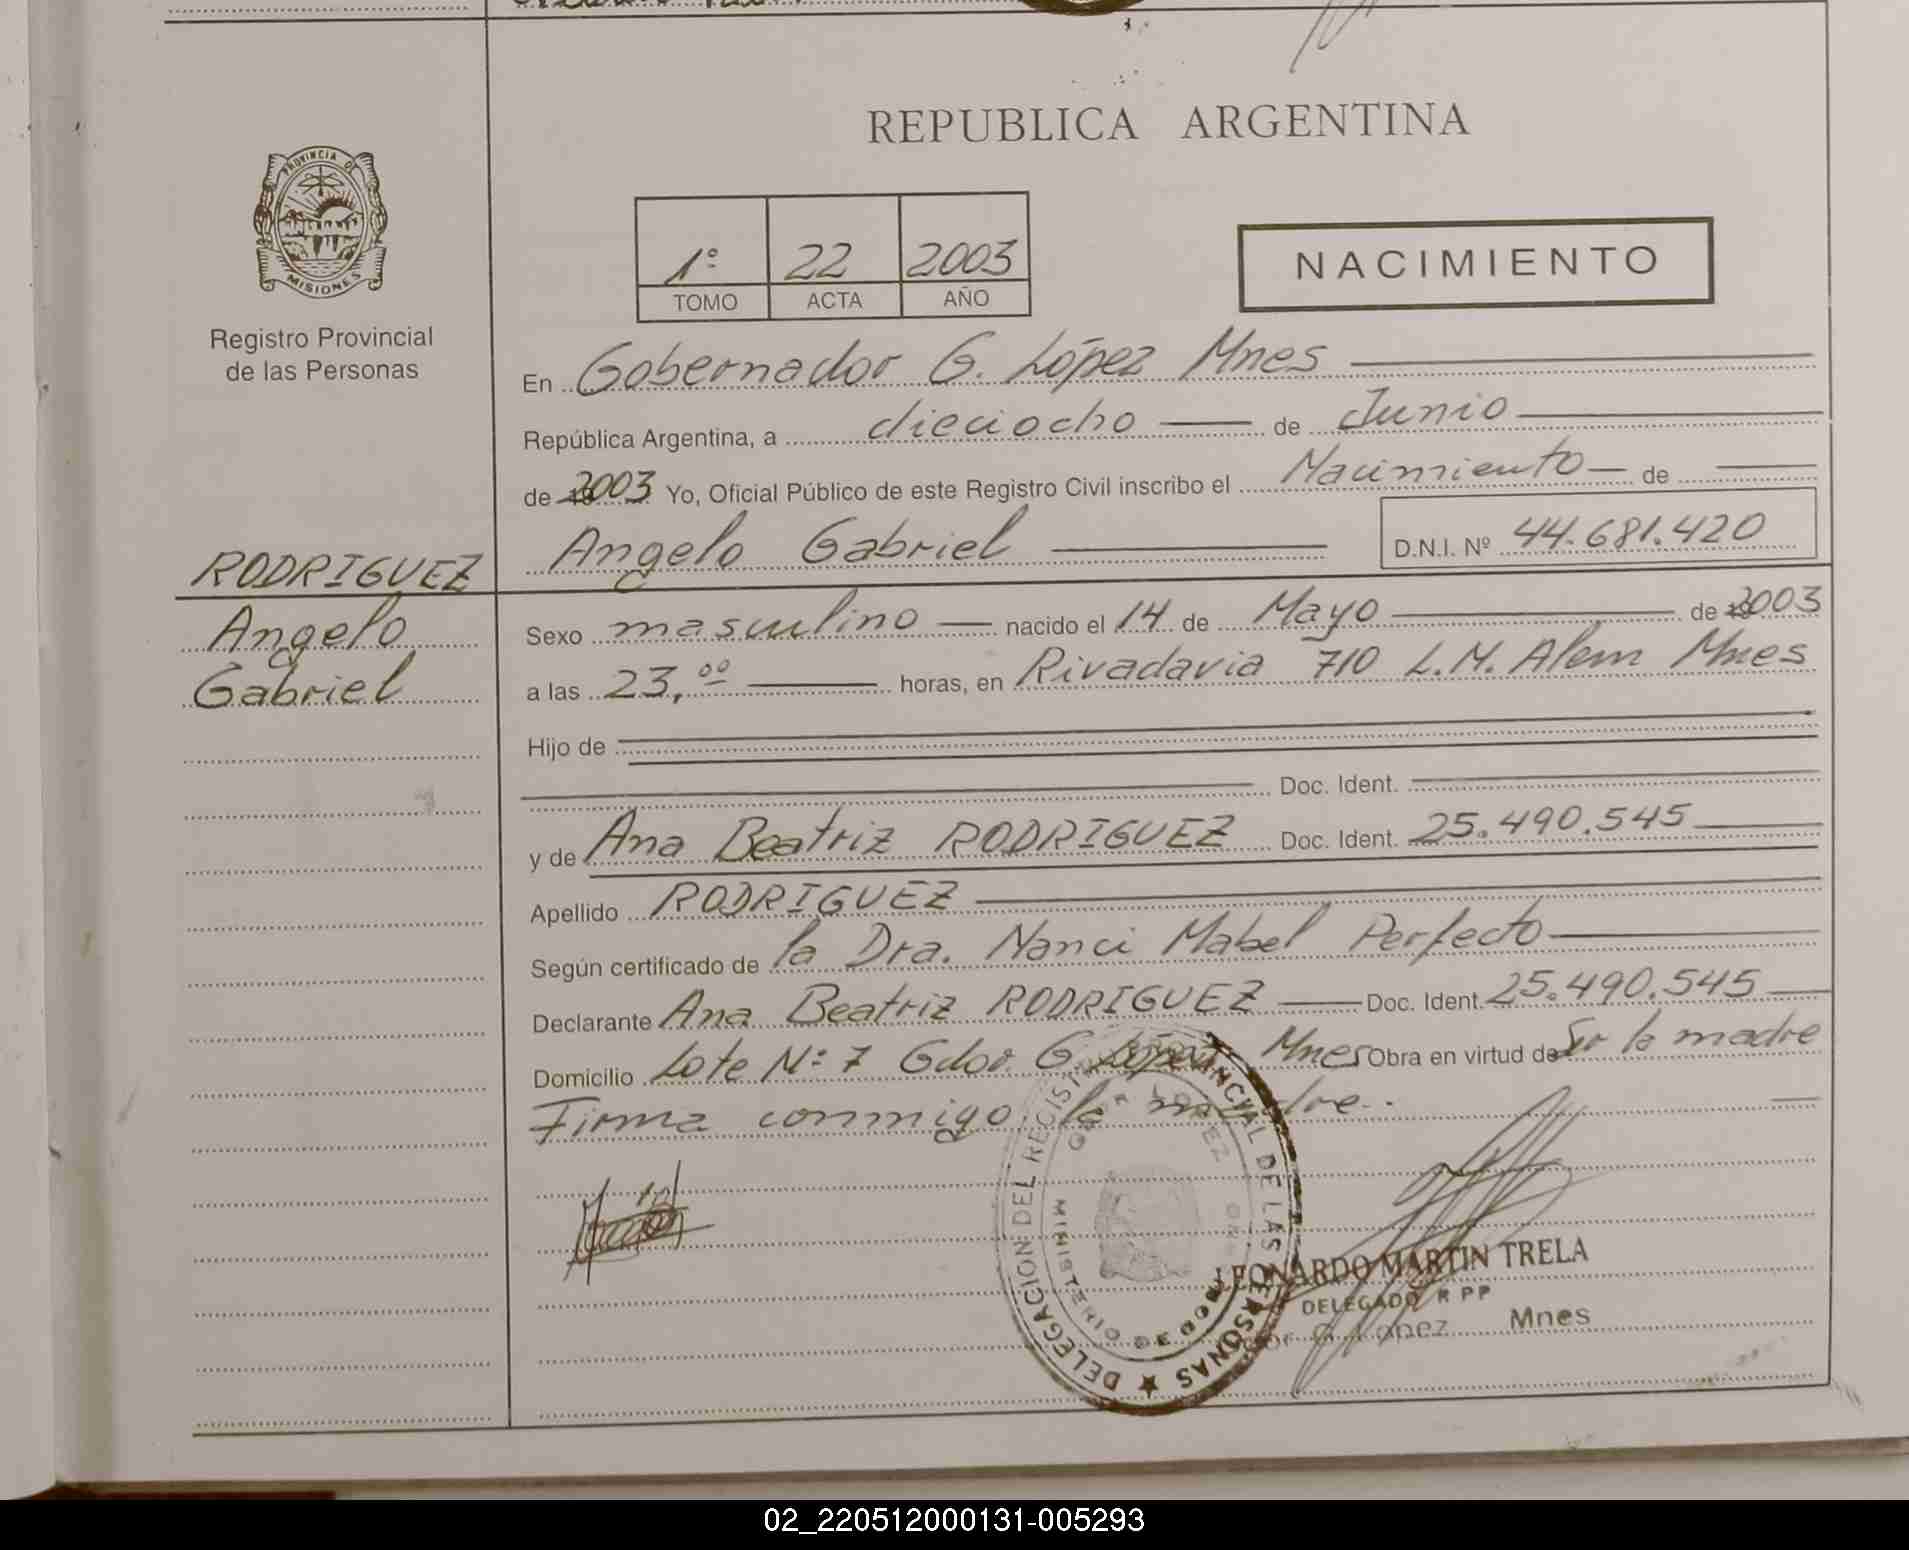 REPUBLICA ARGENTINA
PROVINCIA DE
MISIONES
Registro Provincial
de las Personas
1º 22 2003
TOMO ACTA AÑO
NACIMIENTO
En Gobernador G. López Mnes
República Argentina, a dieciocho de Junio
de 2003 Yo, Oficial Público de este Registro Civil inscribo el Nacimiento de
Angelo Gabriel D.N.I. Nº 44.681.420
RODRIGUEZ
Angelo
Gabriel
Sexo masculino nacido el 14 de Mayo de 2003
a las 23,ºº horas, en Rivadavia 710 L.M. Alem Mnes
Hijo de
Doc. Ident.
y de Ana Beatriz RODRIGUEZ Doc. Ident. 25.490.545
Apellido RODRIGUEZ
Según certificado de la Dra. Nanci Mabel Perfecto
Declarante Ana Beatriz RODRIGUEZ Doc. Ident. 25.490.545
Domicilio Lote Nº 7 Gdor. G. López Mnes Obra en virtud de Ser la madre
Firma conmigo la madre.
DELEGACION DEL REGISTRO PROVINCIAL DE LAS PERSONAS
GDOR LOPEZ
MINISTERIO DE GOB
LEONARDO MARTIN TRELA
DELEGADO R P P
Gdor G. Lopez Mnes
02_220512000131-005293